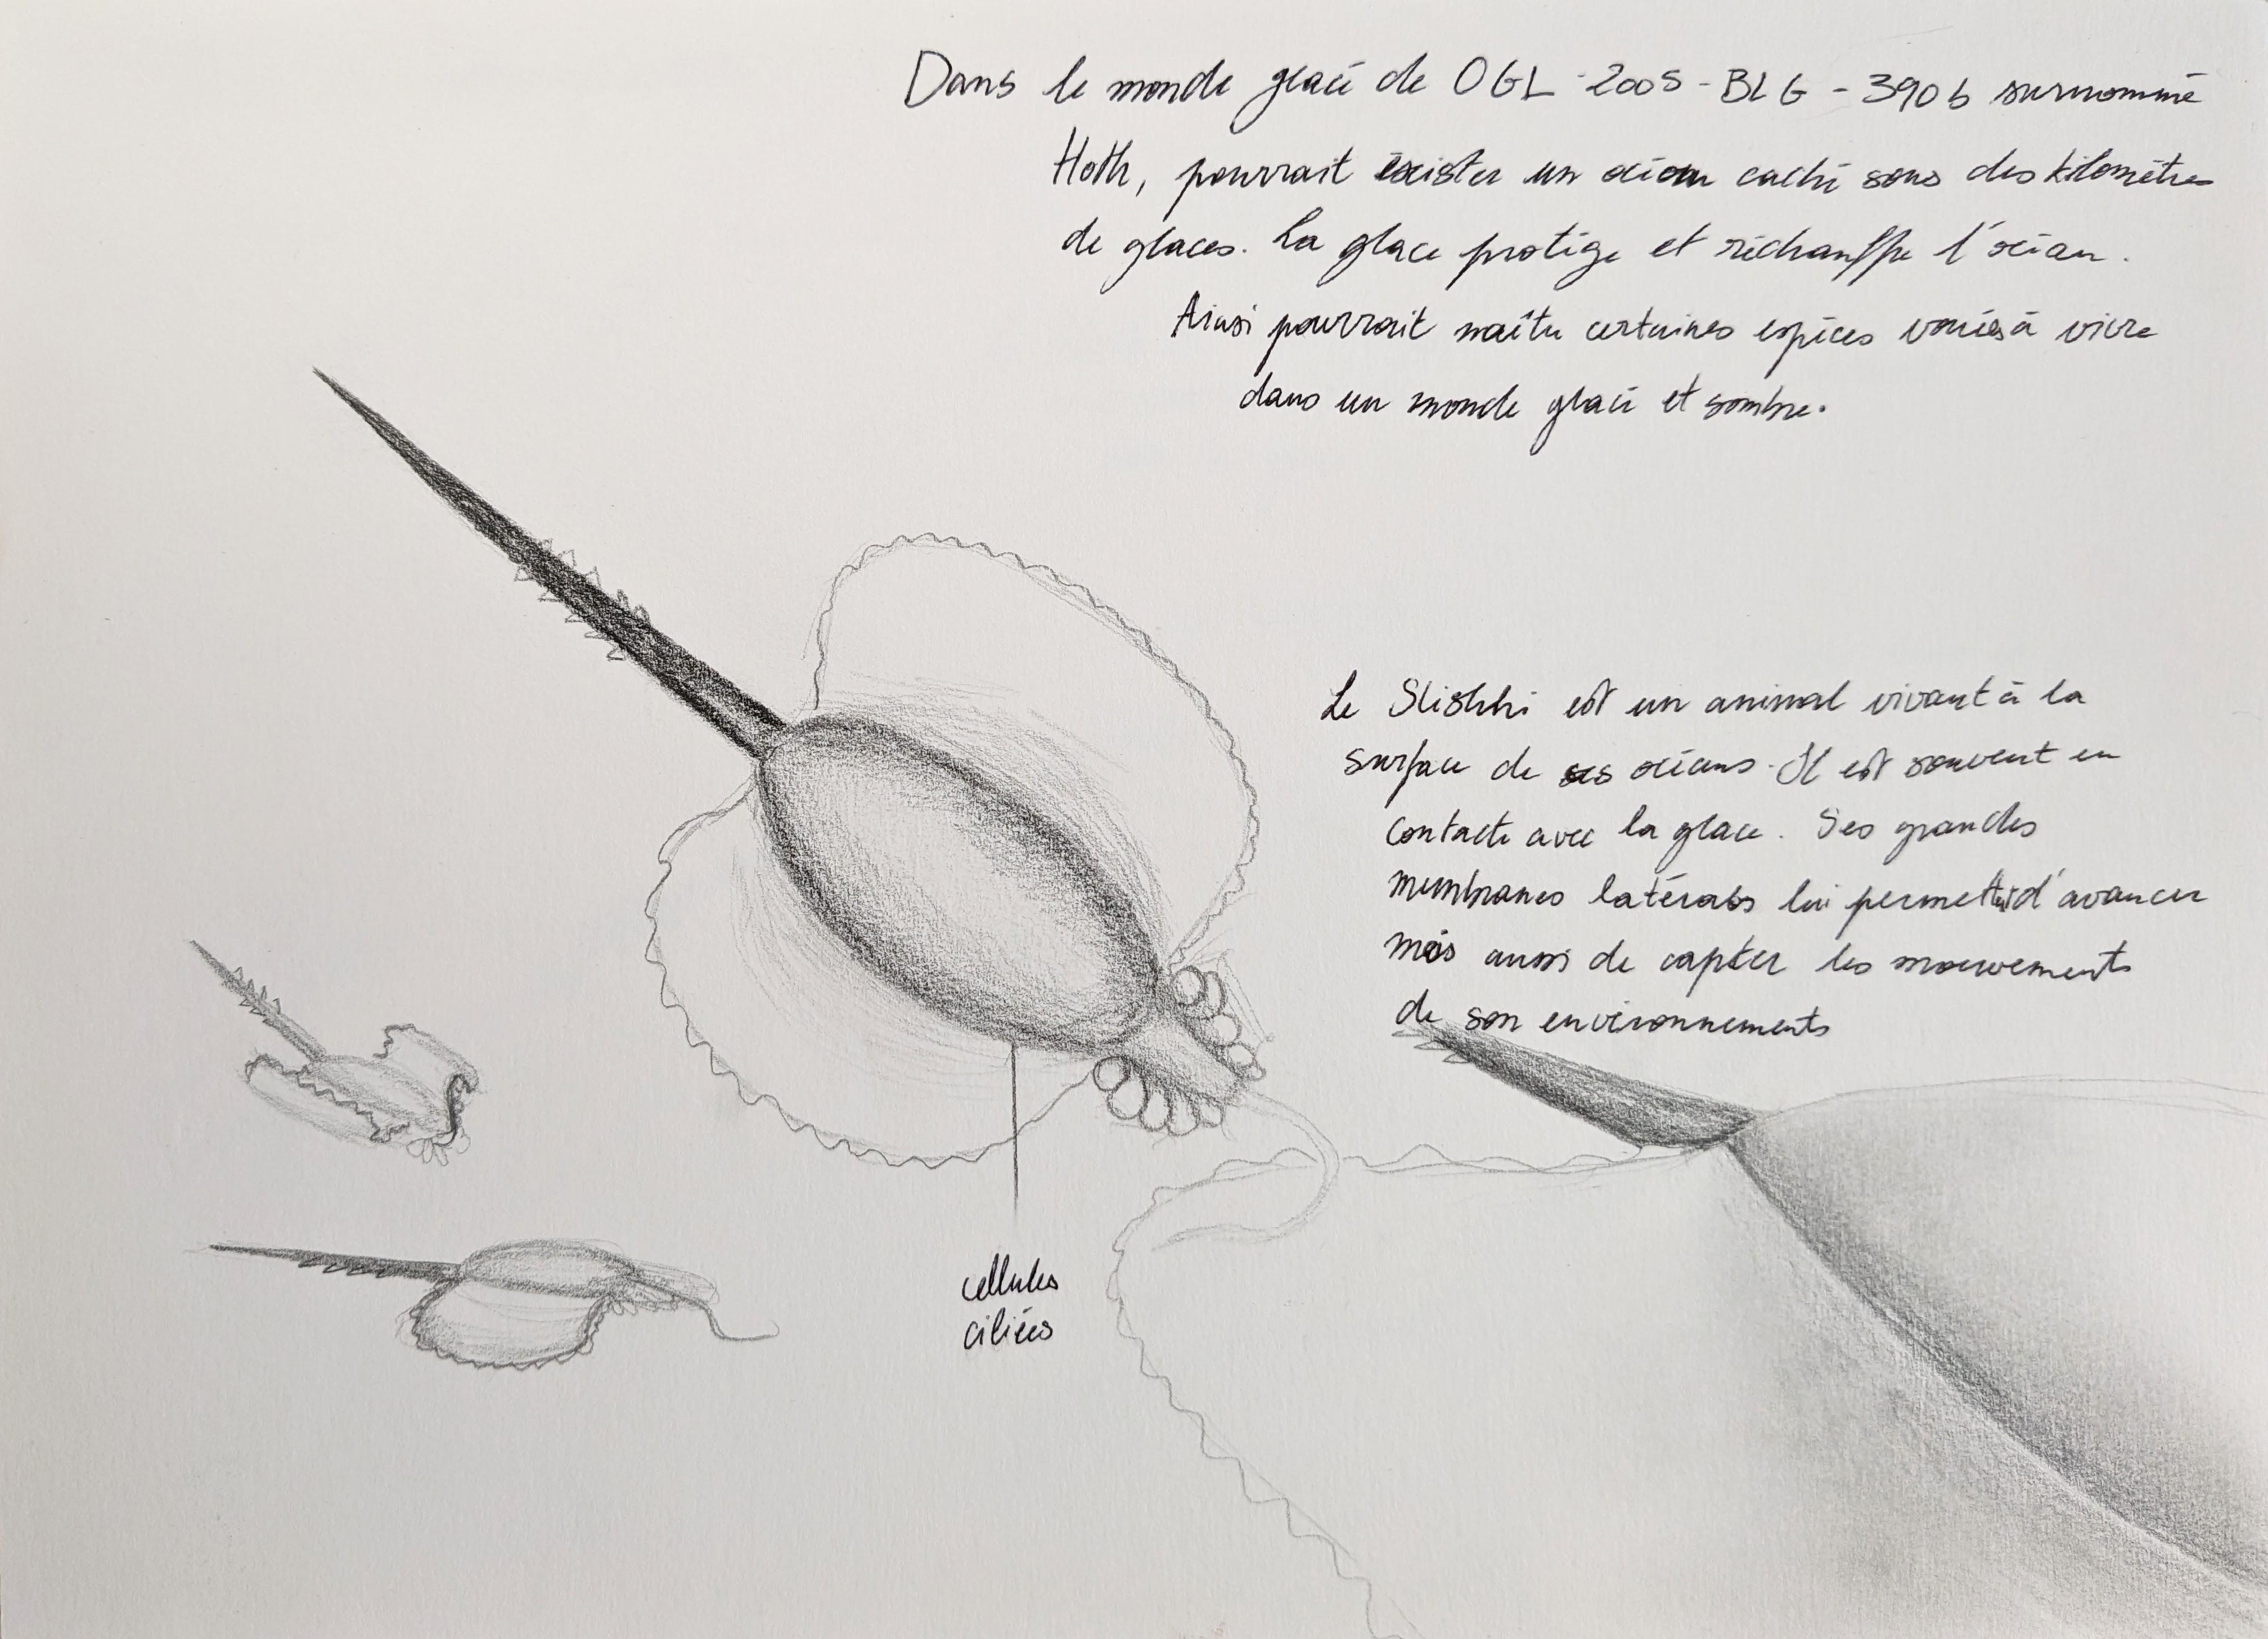 Dans le monde glacé de OGL-2005-BLG-390b surnommé
Hoth, pourrait éxister un océan caché sous des kilomètres
de glaces. La glace protège et réchauffe l'océan.
Ainsi pourrait naître certaines espèces vouées à vivre
dans un monde glacé et sombre.
Le Slishhi est un animal vivant à la
surface de ses océans. Il est souvent en
contacte avec la glace. Ses grandes
membranes latérales lui permettent d'avancer
mais aussi de capter les mouvements
de son environnements
cellules
ciliées